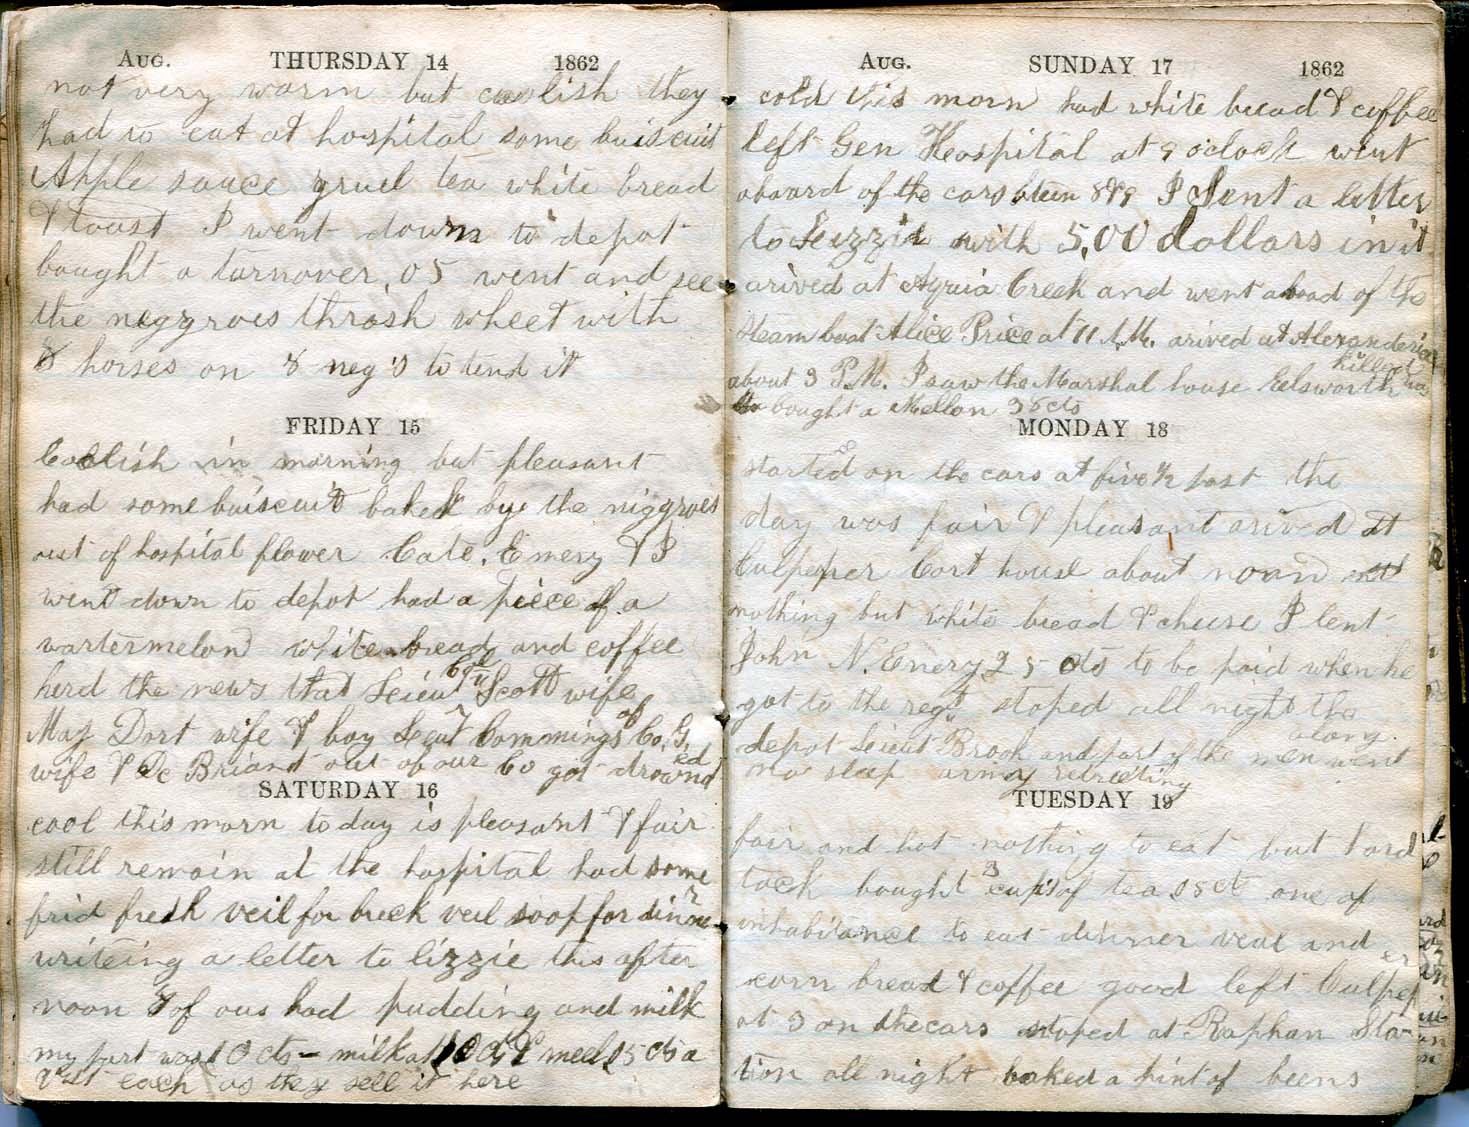 AUG. THURSDAY 14 1862
not very warm but coolish they
had to eat at hospital some buiscuit
Apple sauce gruel tea white bread
& toast I went down to depot
bought a turnover .05 went and see
the negroes thrash wheet with
8 horses on 8 neg's to tend it
FRIDAY 15
Coolish in morning but pleasant
had some buiscuit baked bye the niggroes
out of hospital flower Cate. Emery & I
went down to depot had a piece of a
wartermelon white bread and coffee
herd the news that Leieut 6th Scott wife
Maj Dort wife & boy Leut Commings of Co. G.
wife & De Briand out of our Co got drownd ed
SATURDAY 16
cool this morn to day is pleasant & fair
still remain at the hospital had some
frid fresh veil for breck veil soop for dinner
writeing a letter to lizzie this after
noon 8 of ous had pudding and milk
my part was 10 cts - milk at 10 meel 5 cts a
each as they sell it here
AUG. SUNDAY 17 1862
cold this morn had white bread & coffee
left Gen Hospital at 9 oclock went
aboard of the cars 8&9 I Sent a letter
to Lizzie with 5,00 dollars in it
arived at Aquia Creek and went aboad of the
steam boat Alice Price at 11 A.M. arived at Alexanderia
about 3 P.M. I saw the Marshal house Eelsworth was killed
bought a Mellon 38 cts
MONDAY 18
started on the cars at five ½ past the
day was fair & pleasant arived at
Culpepper Cort house about noon
nothing but white bread & cheese I lent
John N. Emery 25 cts to be paid when he
got to the regt stoped all night the
depot Leieut Brook and part of the men went along.
no sleep army retreeting
TUESDAY 19
fair and hot nothing to eat but hard
tack bought 3 cups of tea 25 cts one of
inhabitance to eat dinner veal and
corn bread & coffee good left Culpeper
at 3 on the cars stoped at Raphan Sta-
tion all night baked a pint of beens